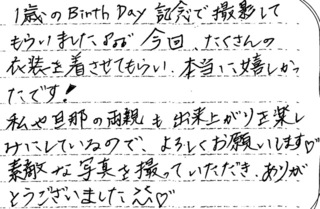 1歳のBirth Day 記念で撮影して
もらいました♪♪♪ 今回、たくさんの
衣装を着させてもらい、本当に嬉しかっ
たです!
私や旦那の両親も出来上がりを楽し
みにしているので、よろしくお願いします♡
素敵な写真を撮っていただき、ありが
とうございました♡